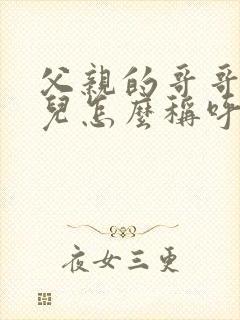 父親的哥哥
兒怎麼稱呼
夜女三更